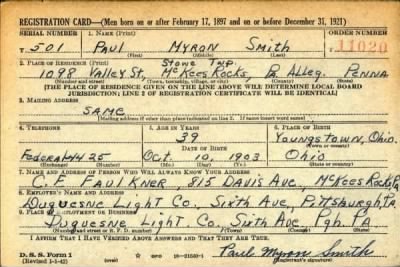 REGISTRATION CARD—(Men born on or after February 17, 1897 and on or before December 31, 1921)
SERIAL NUMBER 1. NAME (Print) ORDER NUMBER
T. 501 PAUL MYRON SMITH 11020
(First) (Middle) (Last)
2. PLACE OF RESIDENCE (Print) STOWE TWP.
1098 VALLEY ST, MCKEES ROCKS, PA. ALLEG. PENNA
(Number and street) (Town, township, village, or city) (County) (State)
[THE PLACE OF RESIDENCE GIVEN ON THE LINE ABOVE WILL DETERMINE LOCAL BOARD
JURISDICTION; LINE 2 OF REGISTRATION CERTIFICATE WILL BE IDENTICAL]
3. MAILING ADDRESS
SAME
[Mailing address if other than place indicated on line 2. If same insert word same]
4. TELEPHONE 5. AGE IN YEARS 6. PLACE OF BIRTH
39 YOUNGSTOWN, OHIO,
DATE OF BIRTH (Town or county)
Federal 4425 OCT 10, 1903 OHIO
(Exchange) (Number) (Mo.) (Day) (Yr.) (State or country)
7. NAME AND ADDRESS OF PERSON WHO WILL ALWAYS KNOW YOUR ADDRESS
C. F. FAULKNER, 815 DAVIS AVE, MCKEES ROCKS PA
8. EMPLOYER'S NAME AND ADDRESS
DUQUESNE LIGHT CO, SIXTH AVE, PITTSBURGH PA
9. PLACE OF EMPLOYMENT OR BUSINESS
DUQUESNE LIGHT CO. SIXTH AVE PGH. PA
(Number and street or R. F. D. number) (Town) (County) (State)
I AFFIRM THAT I HAVE VERIFIED ABOVE ANSWERS AND THAT THEY ARE TRUE.
D. S. S. Form 1
(Revised 1-1-42) (over) GPO 16-21630-1 Paul Myron Smith